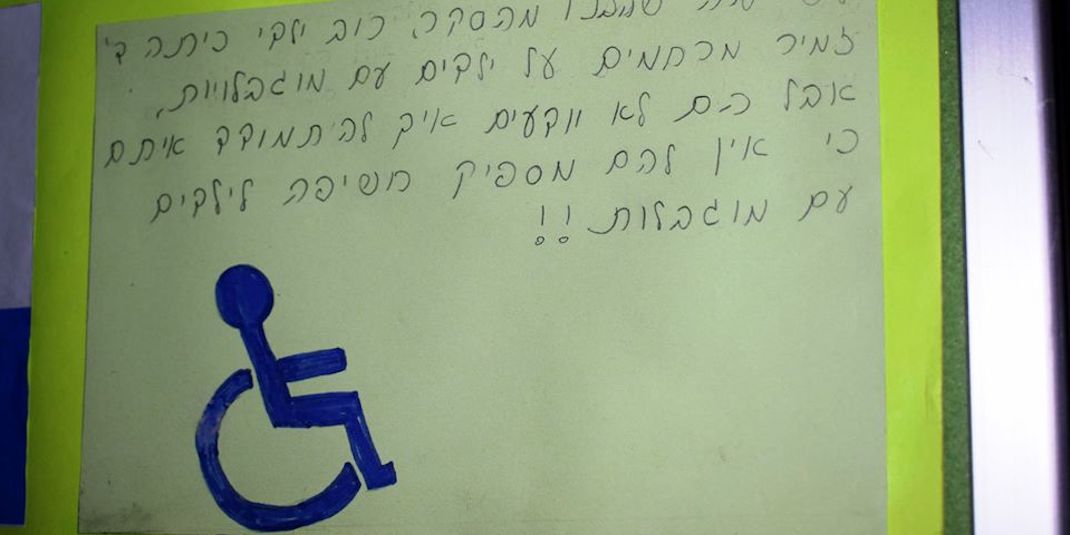 שהבנו מהסקר, רוב ילדי כיתה ד'
זמיר מרחמים על ילדים עם מוגבלויות,
אבל הם לא יודעים איך להתמודד איתם
כי אין להם מספיק חשיפה לילדים
עם מוגבלות !!